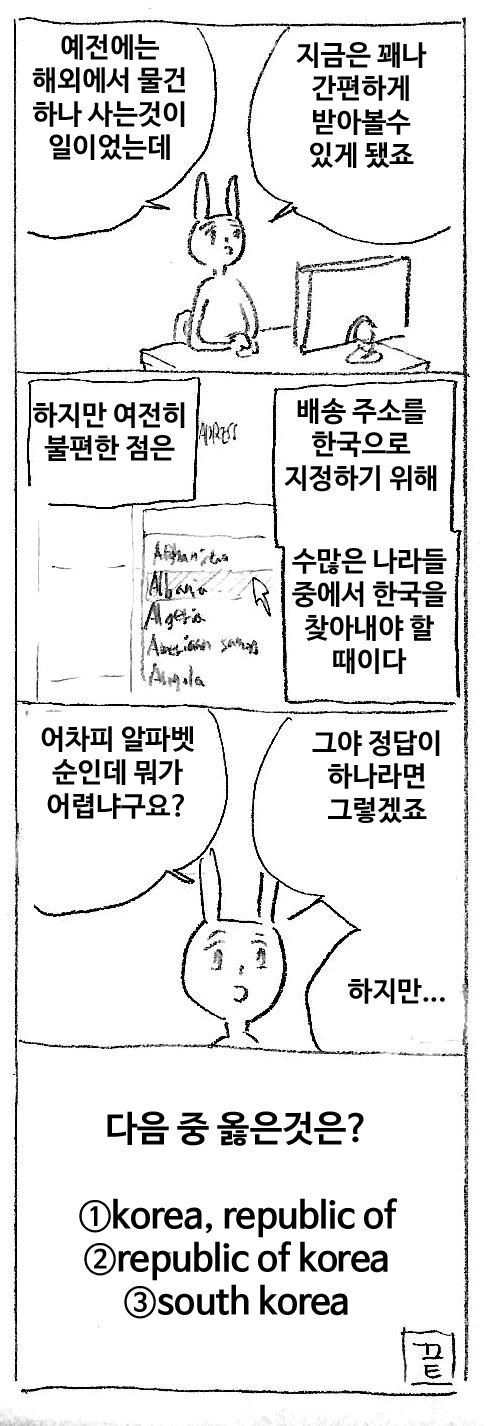 예전에는
해외에서 물건
하나 사는것이
일이었는데
지금은 꽤나
간편하게
받아볼수
있게 됐죠
하지만 여전히
불편한 점은
ADDRESS
배송 주소를
한국으로
지정하기 위해
수많은 나라들
중에서 한국을
찾아내야 할
때이다
Afghanistan
Albania
Algeria
American samoa
Angola
어차피 알파벳
순인데 뭐가
어렵냐구요?
그야 정답이
하나라면
그렇겠죠
하지만...
다음 중 옳은것은?
①korea, republic of
②republic of korea
③south korea
끝